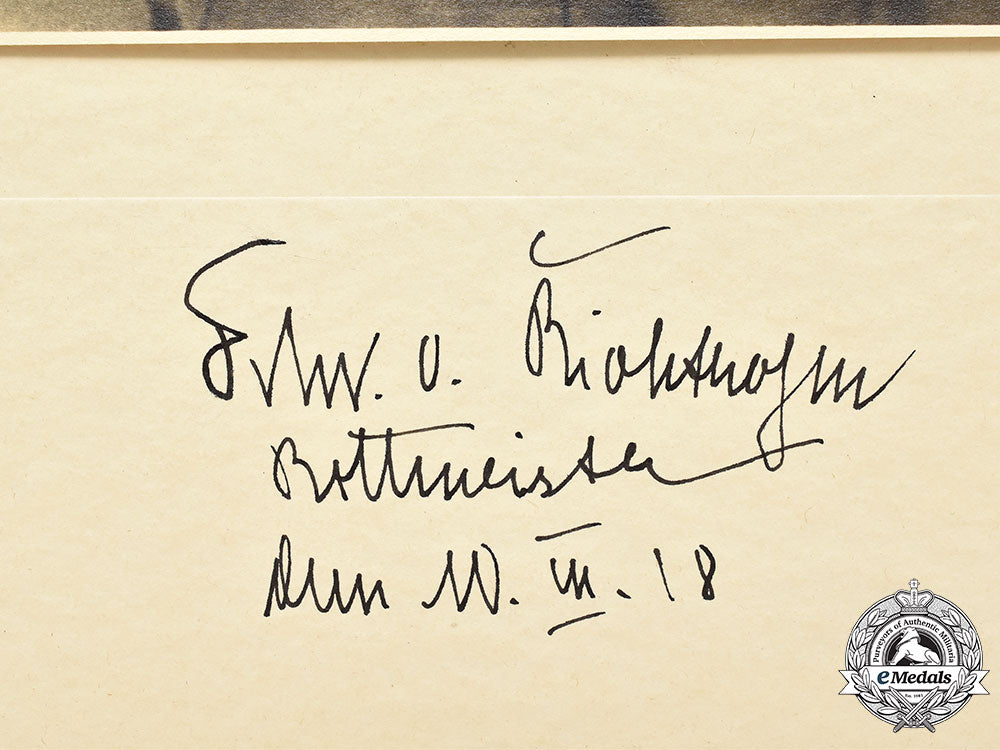 Frhr. v. Richthofen
Rittmeister
den 10. III. 18
Purveyors of Authentic Militaria
eMedals
Est. 1985